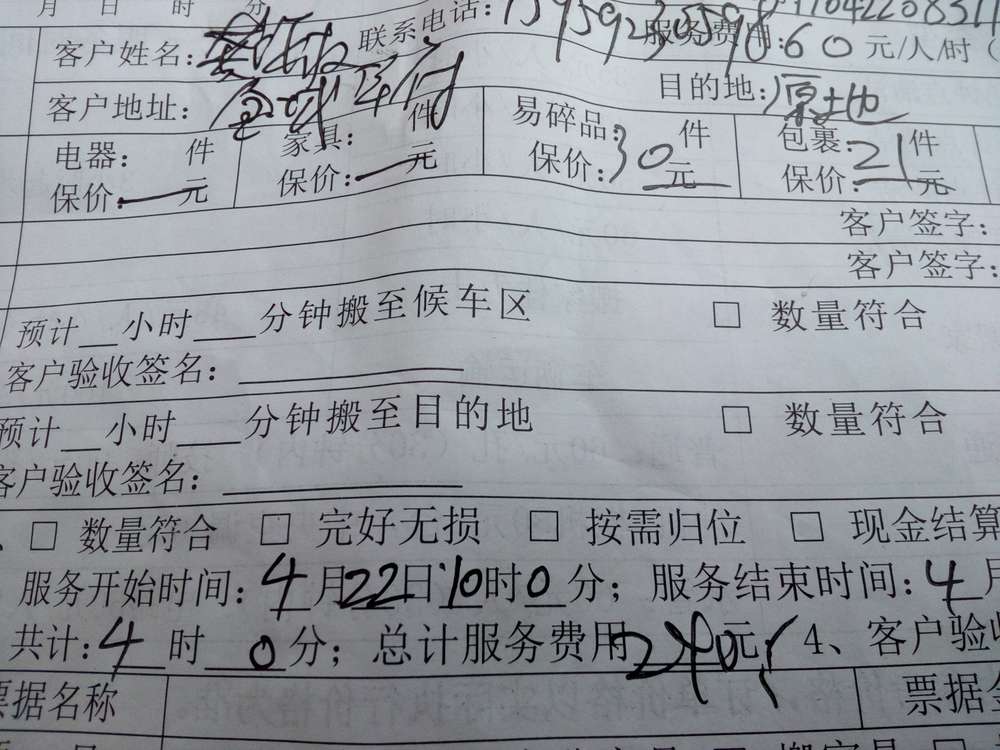 月 日 时 分
联系电话:
服务费用:60元/人/时(
客户姓名:
客户地址: 目的地:原地
电器: 件 家具: 件 易碎品: 件 包裹: 件
保价:— 元 保价:— 元 保价:30元 保价:21元
客户签字:
客户签字:
预计__小时___分钟搬至候车区 □ 数量符合
客户验收签名:
预计__小时___分钟搬至目的地 □ 数量符合
客户验收签名:
、□ 数量符合 □ 完好无损 □ 按需归位 □ 现金结算
服务开始时间:4月22日10时0分;服务结束时间:4月
共计:4时0分;总计服务费用240元 4、客户验收
票据名称 票据金